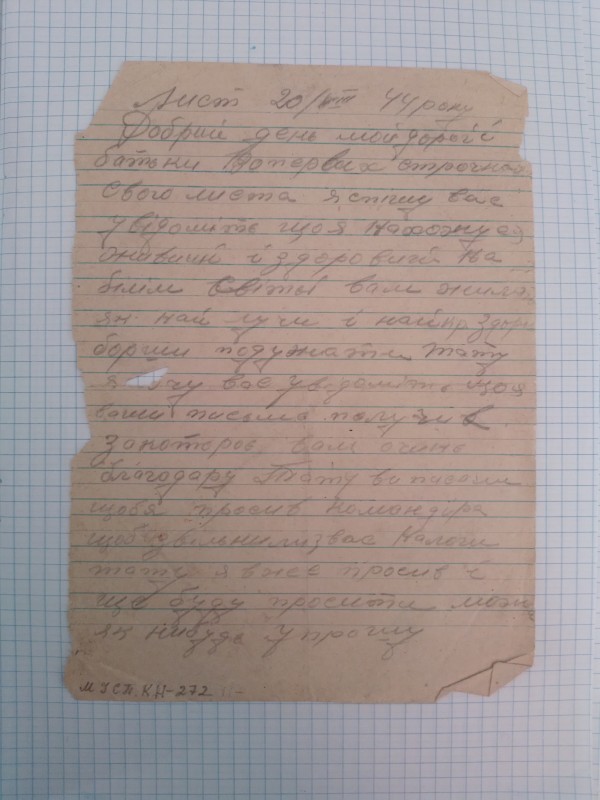 Лист 20/VIII 44 року
Добрий день мої дорогії
батьки Вопервах строчках
свого листа я спішу вас
увідоміть що я нахожуся
живий і здоровий на
білім світі вам жилая
як най лучи і най
тату
я вас увідоміть що я
ваши письма получив
за которое вам очень
благодару Тату ви писали
щоб я просив командіра
щоб звільнили з вас налоги
тату я вже просив і
ще буду просити може
як нибудь упрошу
МІСТ. КН-272